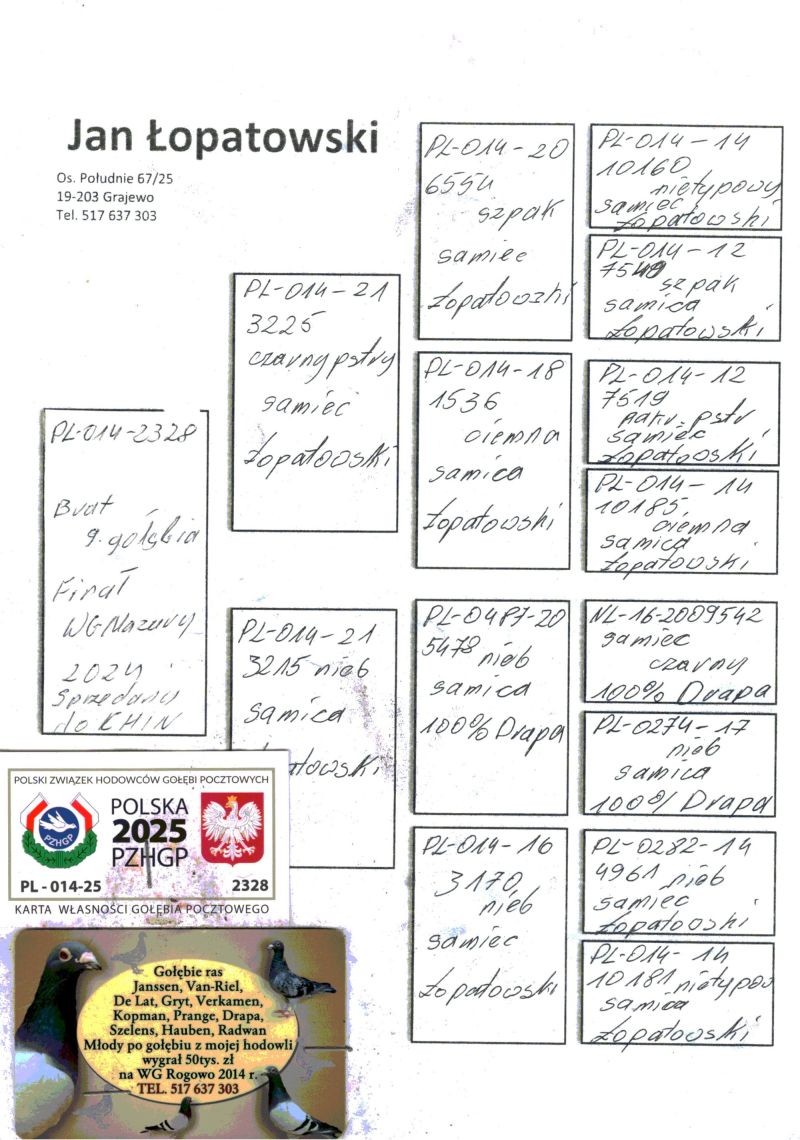 Jan Łopatowski
Os. Południe 67/25
19-203 Grajewo
Tel. 517 637 303
PL-014-2328
Brat
g. gołębia
Finał
WG Mazury
2024
Sprzedany
do KHIN
PL-014-21
3225
czarny pstry
samiec
Łopatowski
PL-014-21
3215 nieb
samica
PL-014-20
6554
szpak
samiec
Łopatowski
PL-014-18
1536
ciemna
samica
Łopatowski
PL-0487-20
5478 nieb
samica
100% Drapa
PL-014-16
3170
nieb
samiec
Łopatowski
PL-014-14
10160
nietypowy
samiec
Łopatowski
PL-014-12
szpak
samica
Łopatowski
PL-014-12
7519
nakr. pstr
samiec
Łopatowski
PL-014-14
10185
ciemna
samica
Łopatowski
NL-16-2009542
samiec
czarny
100% Drapa
PL-0274-17
nieb
samica
100% Drapa
PL-0282-14
4961 nieb
samiec
Łopatowski
PL-014-14
10181 nietypow
samica
Łopatowski
POLSKI ZWIĄZEK HODOWCÓW GOŁĘBI POCZTOWYCH
PZHGP
POLSKA
2025
PZHGP
PL - 014-25 2328
KARTA WŁASNOŚCI GOŁĘBIA POCZTOWEGO
Gołębie ras
Janssen, Van-Riel,
De Lat, Gryt, Verkamen,
Kopman, Prange, Drapa,
Szelens, Hauben, Radwan
Młody po gołębiu z mojej hodowli
wygrał 50tys. zł
na WG Rogowo 2014 r.
TEL. 517 637 303